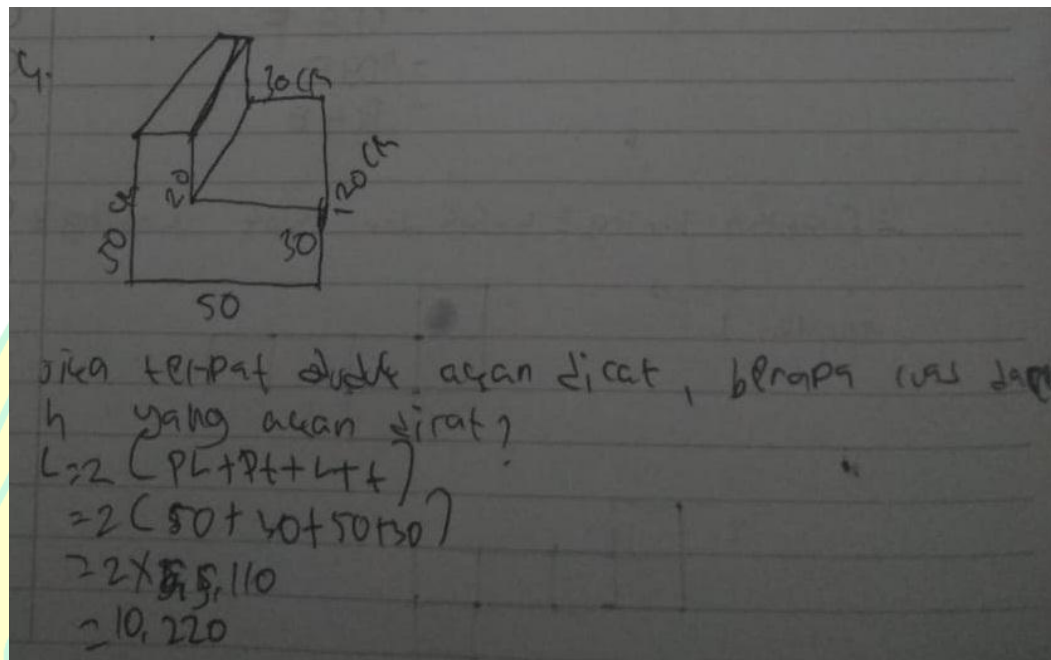 4.
30 cm
20
120 cm
50
30
50
jika tempat duduk akan dicat, berapa luas daera
h yang akan dicat?
L=2 (PL+Pt+L+t)
=2 (50+30+50+30)
=2x 5,110
=10,220